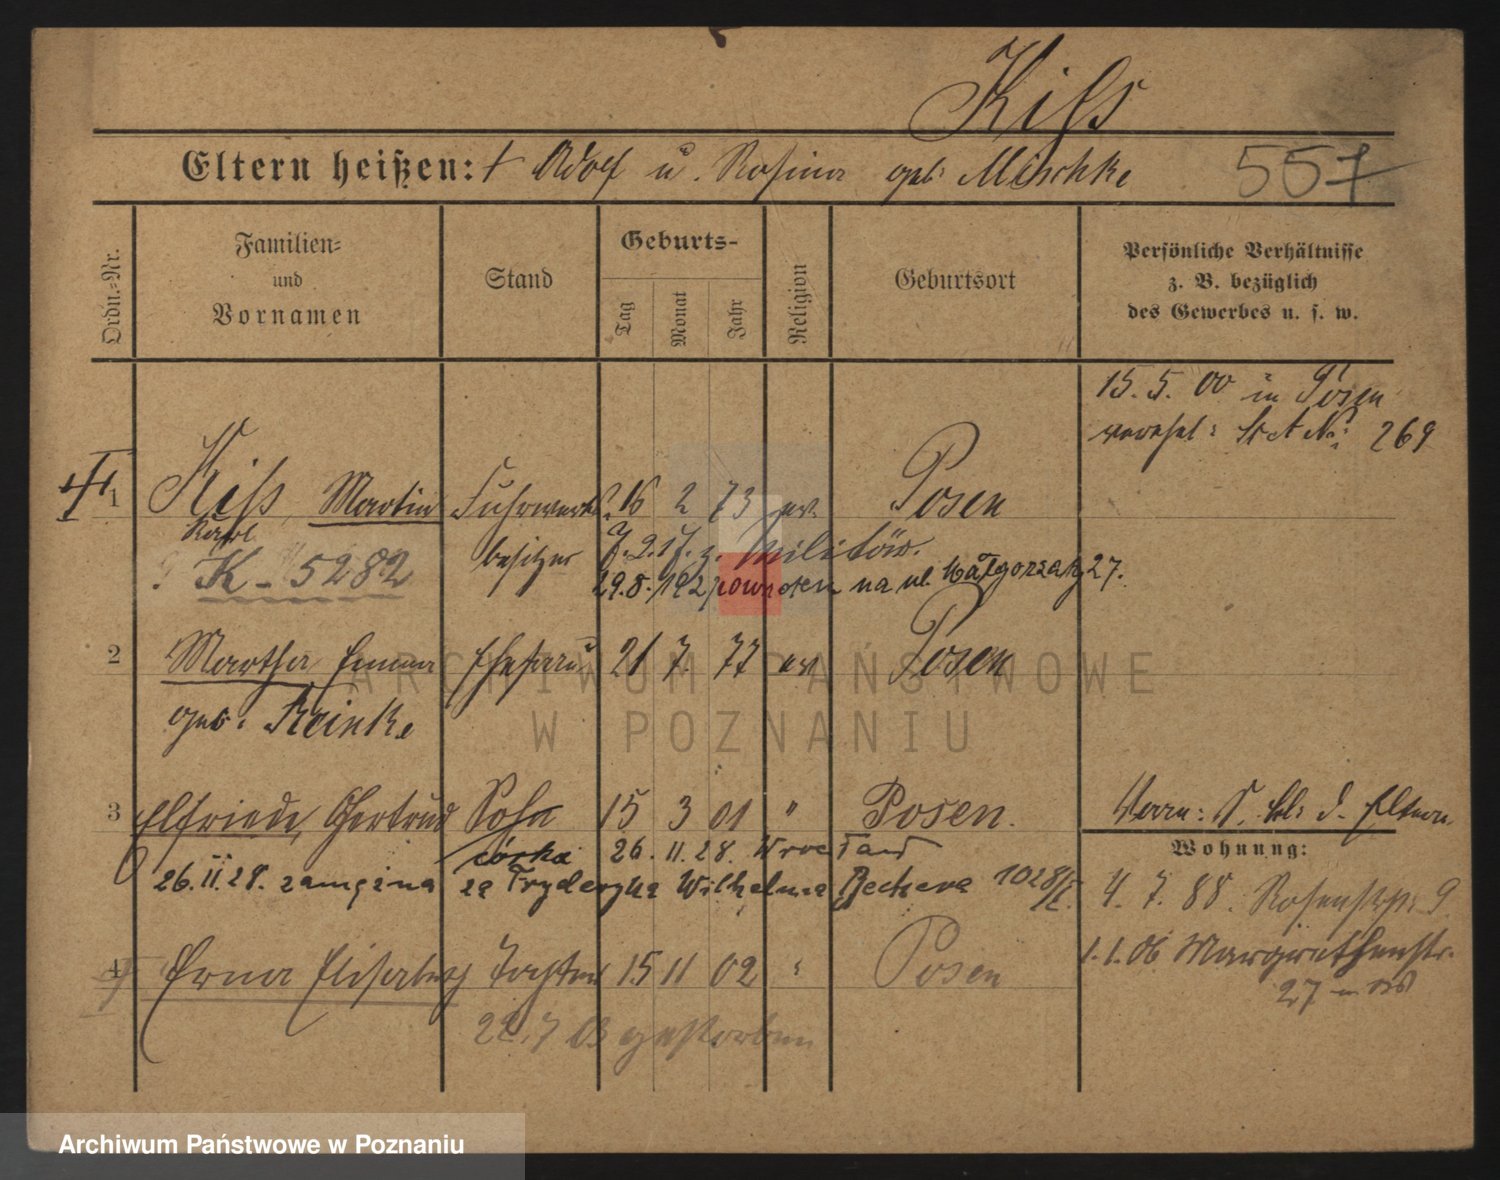 Kiss
Eltern heißen: † Adolf u. Rosina geb. Mischke
557
Ordn.-Nr.
Familien-
und
Vornamen
Stand
Geburts-
Tag
Monat
Jahr
Religion
Geburtsort
Persönliche Verhältnisse
z. B. bezüglich
des Gewerbes u. s. w.
15. 5. 00 in Posen
verehel: St A No: 269
1 Kiss, Martin Fuhrwerks 16 2 73 ev. Posen
Karl besitzer Militär.
K - 5282
29.8.192 na ul. Małgorzaty 27.
2 Martha, Emma Ehefrau 21 7. 77 ev Posen
geb. Reinke
3 Elfriede, Gertrud Sohn 15 3 01 " Posen.
córka 26. II. 28. Wrocław
26.II.28. zamężna za Fryderyka Wilhelma Beckera 1028/I.
Verm: d. Eltern
Wohnung:
4. 7. 88. Rosenstr: 9
1.1.06 Margarethenstr.
27
4 Erna Elisabeth Tochter 15 11 02 " Posen
22.7 03 gestorben
ARCHIWUM PAŃSTWOWE
W POZNANIU
Archiwum Państwowe w Poznaniu